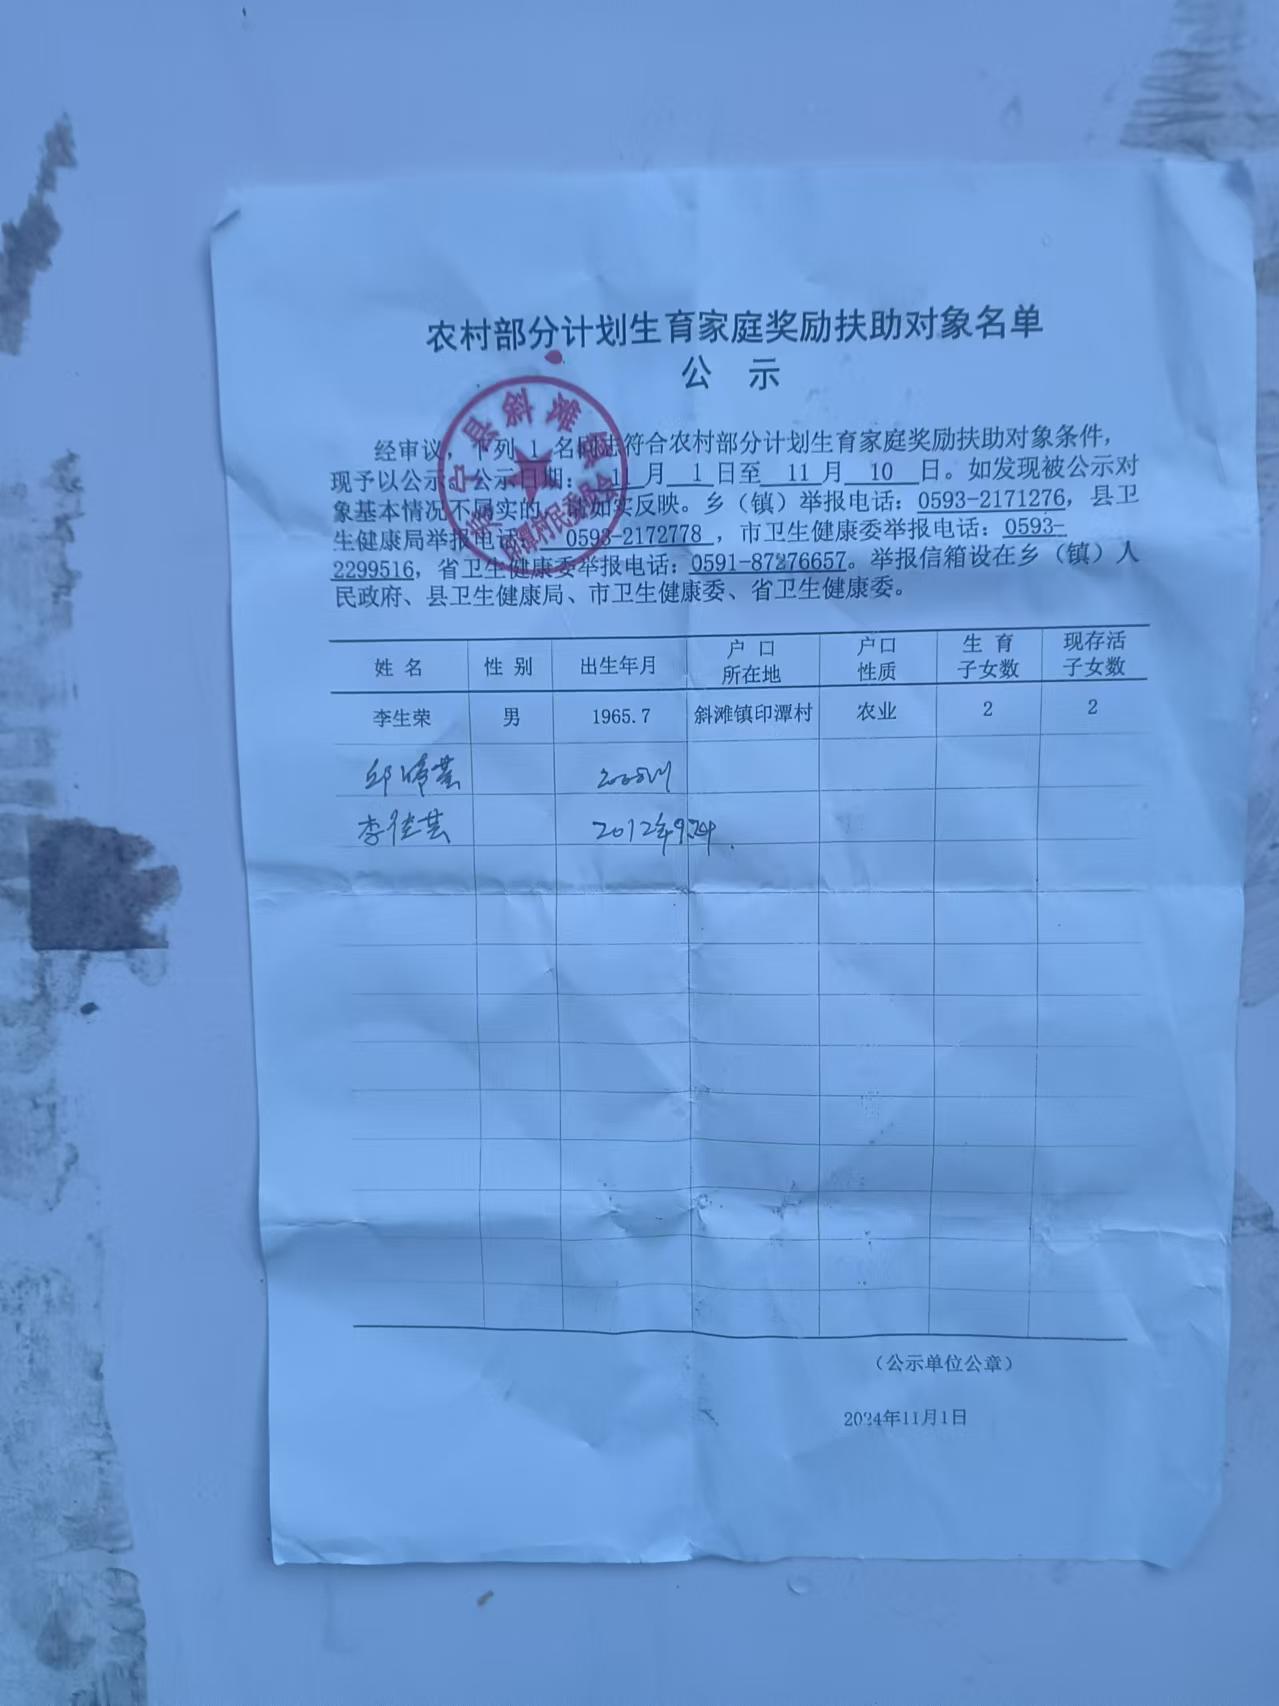 农村部分计划生育家庭奖励扶助对象名单
公 示
经审议，下列 1 名同志符合农村部分计划生育家庭奖励扶助对象条件，
现予以公示。公示日期： 11 月 1 日至 11 月 10 日。如发现被公示对
象基本情况不属实的，请如实反映。乡（镇）举报电话：0593-2171276，县卫
生健康局举报电话： 0593-2172778 ，市卫生健康委举报电话：0593-
2299516，省卫生健康委举报电话：0591-87276657。举报信箱设在乡（镇）人
民政府、县卫生健康局、市卫生健康委、省卫生健康委。
寿宁县斜滩镇
印潭村民委员会
姓 名 性 别 出生年月 户 口 所在地 户口 性质 生 育 子女数 现存活 子女数
李生荣 男 1965.7 斜滩镇印潭村 农业 2 2
邱
李佳芸 2012年9.
（公示单位公章）
2024年11月1日